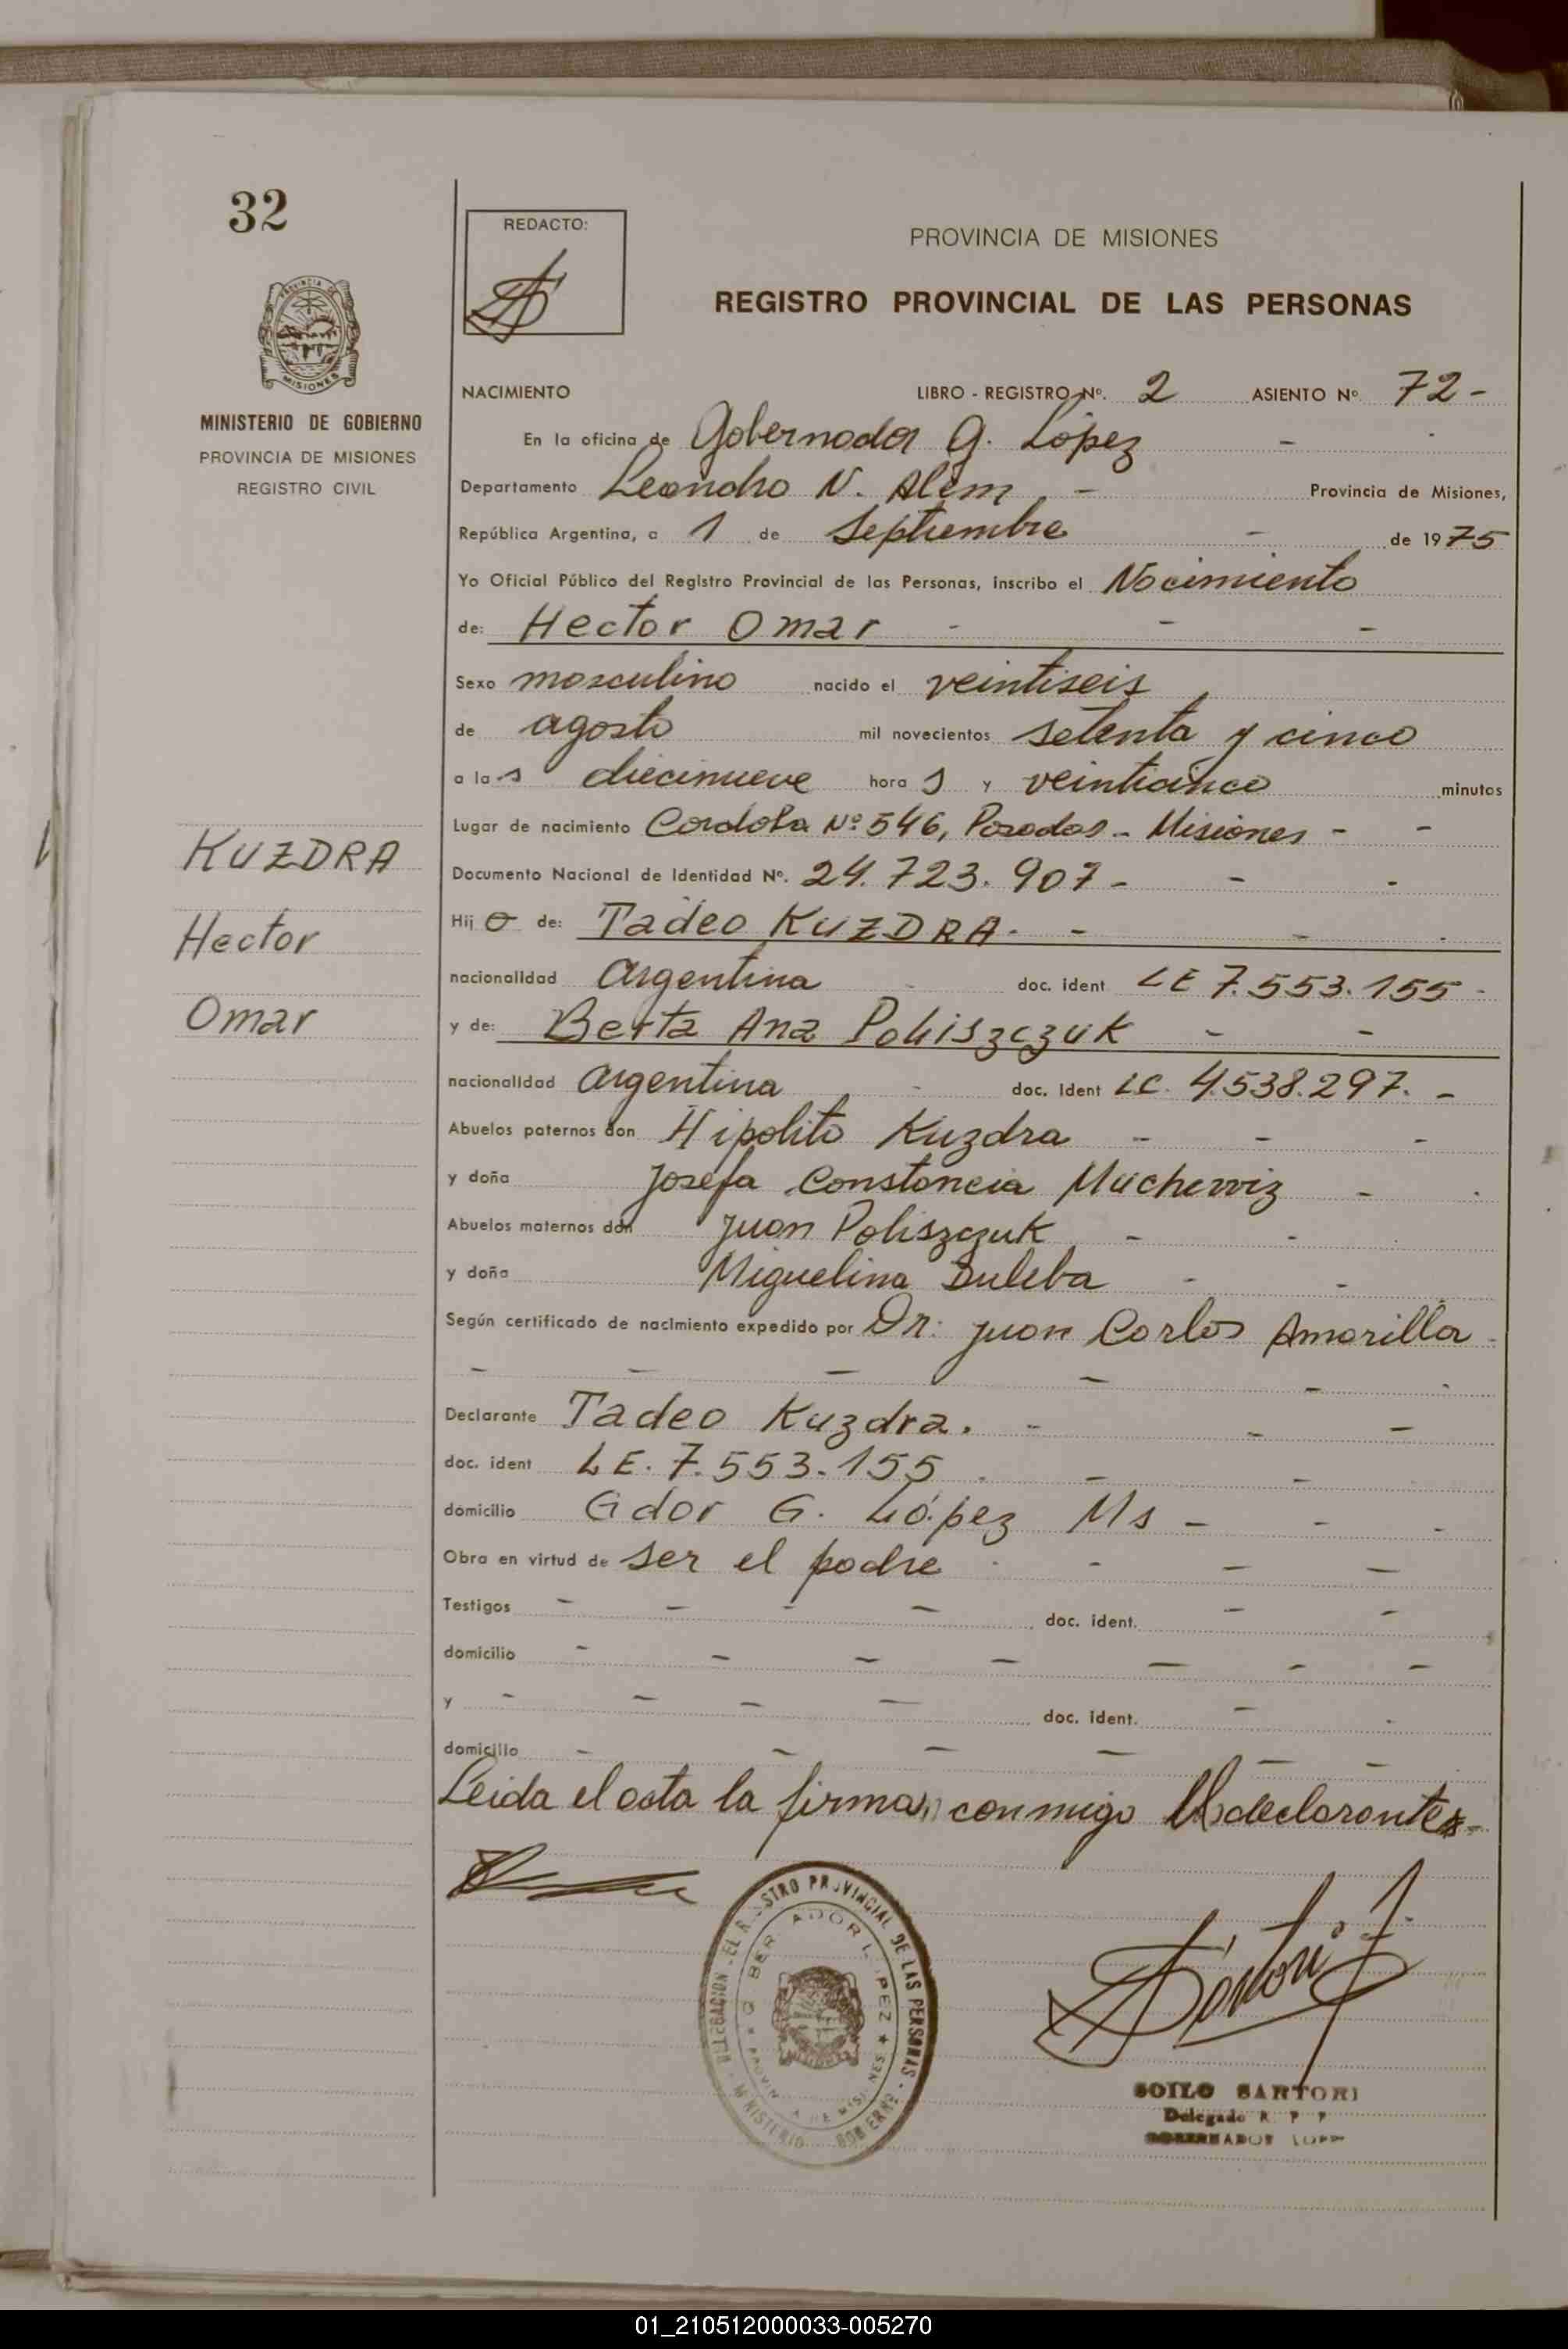 32
REDACTO:
PROVINCIA DE MISIONES
REGISTRO PROVINCIAL DE LAS PERSONAS
MINISTERIO DE GOBIERNO
PROVINCIA DE MISIONES
REGISTRO CIVIL
NACIMIENTO LIBRO - REGISTRO Nº. 2 ASIENTO Nº. 72 -
En la oficina de Gobernador G. López -
Departamento Leandro N. Alem - Provincia de Misiones,
República Argentina, a 1 de Septiembre - de 1975
Yo Oficial Público del Registro Provincial de las Personas, inscribo el Nacimiento
de: Hector Omar - - -
Sexo masculino nacido el veintiseis
de agosto mil novecientos setenta y cinco
a las diecinueve horas y veinticinco minutos
Lugar de nacimiento Cordoba Nº 546, Posadas - Misiones - -
Documento Nacional de Identidad Nº. 24.723.907 - - -
Hijo de: Tadeo KUZDRA. - - -
nacionalidad Argentina - doc. ident LE 7.553.155 -
y de: Berta Ana Poliszczuk - -
nacionalidad Argentina - doc. ident LC. 4.538.297. -
Abuelos paternos don Hipolito Kuzdra - - -
y doña Josefa Constancia Mucherviz - -
Abuelos maternos don Juan Poliszczuk - -
y doña Miguelina Duleba - -
Según certificado de nacimiento expedido por Dr: Juan Carlos Amarilla -
- - - - - -
Declarante Tadeo Kuzdra. - - -
doc. ident LE. 7.553.155 - - -
domicilio Gdor G. López Ms - - -
Obra en virtud de ser el padre - - - -
Testigos - - - - doc. ident. - -
domicilio - - - - - - -
y - - - - doc. ident. - -
domicilio - - - - - -
Leida el acta la firman conmigo declarantes -
KUZDRA
Hector
Omar
DELEGACION DEL REGISTRO PROVINCIAL DE LAS PERSONAS - MINISTERIO GOBIERNO
GOBERNADOR LOPEZ ★ PROVINCIA DE MISIONES ★
Sartori
SOILO SARTORI
Delegado R. P. P.
GOBERNADOR LOPEZ
01_210512000033-005270